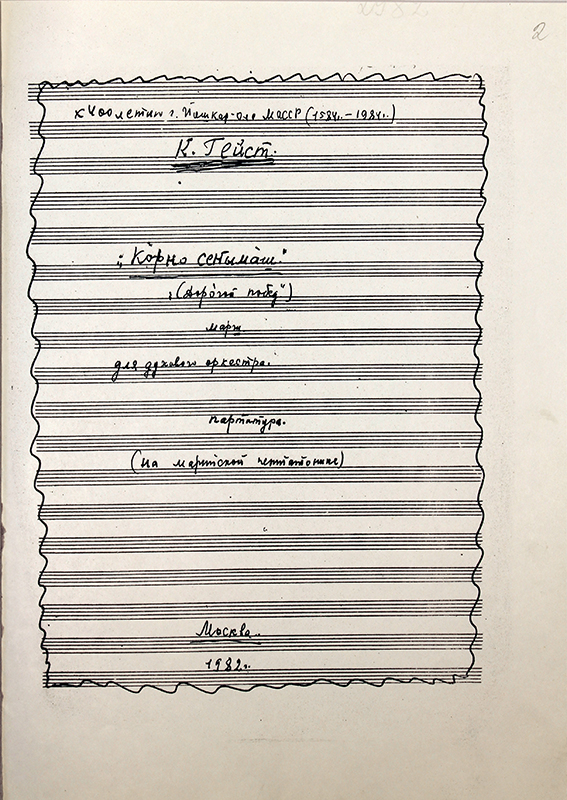 2
к 400летию г. Йошкар-Оле МАССР (1584г.–1984г.)
К. Гейст.
„Корно сеҥымаш."
„(Дорогой побед")
марш
для духового оркестра.
партитура.
(на марийской пентатонике)
Москва.
1982г.